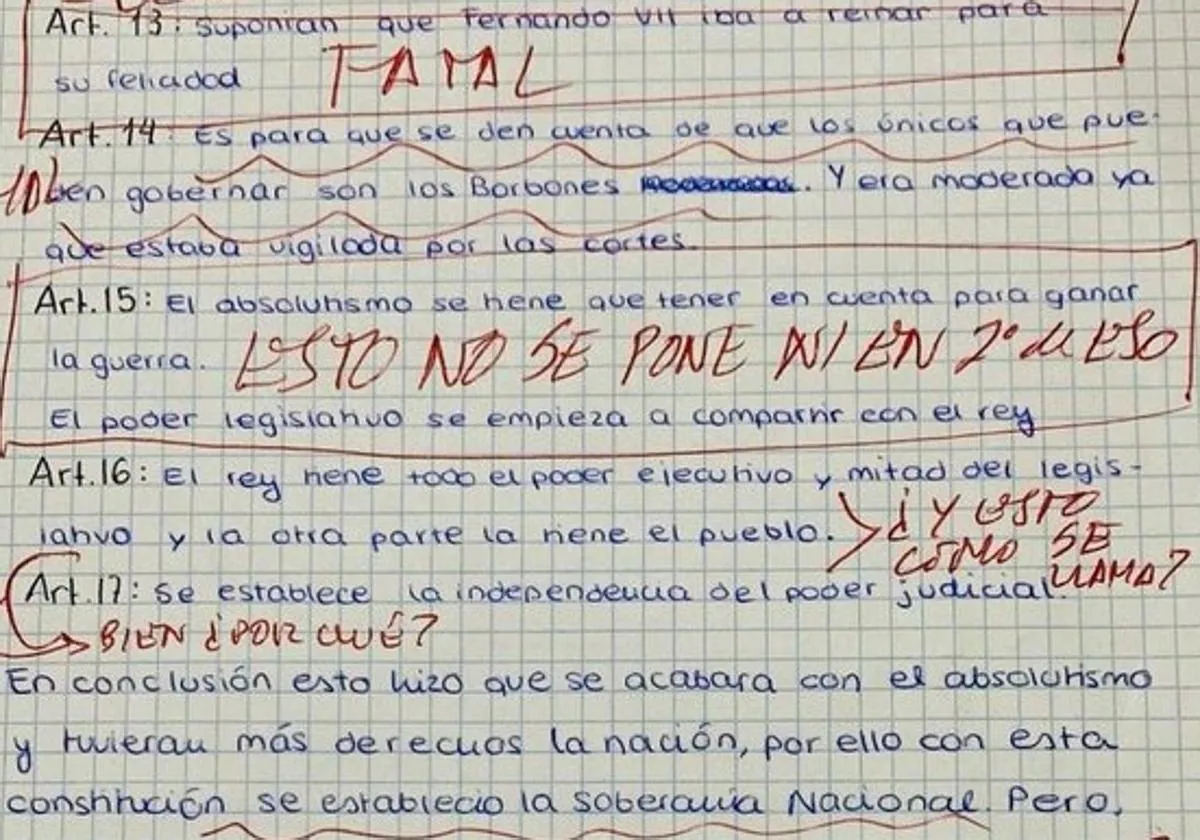 Art. 13: suponían que Fernando VII iba a reinar para
su felicidad FATAL
Art. 14: Es para que se den cuenta de que los únicos que pue-
den gobernar son los Borbones. Y era moderada ya
que estaba vigilada por las cortes.
Art. 15: El absolutismo se tiene que tener en cuenta para ganar
la guerra. ESTO NO SE PONE NI EN 2º de ESO
El poder legislativo se empieza a compartir con el rey
Art. 16: El rey tiene todo el poder ejecutivo y mitad del legis-
lativo y la otra parte la tiene el pueblo. ¿Y ESTO
CÓMO SE
LLAMA?
Art. 17: Se establece la independencia del poder judicial.
BIEN ¿POR QUÉ?
En conclusión esto hizo que se acabara con el absolutismo
y tuvieran más derechos la nación, por ello con esta
constitución se estableció la soberanía Nacional. Pero,